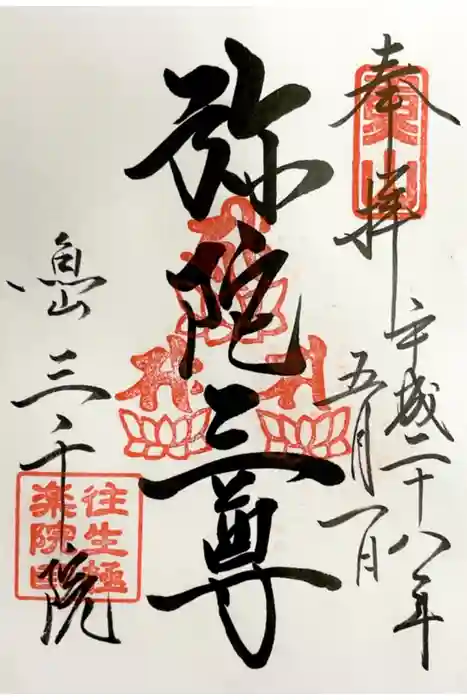 奉拝
平成二十八年
五月一日
弥陀三尊
魚山
三千院
魚山
往生極
楽院印